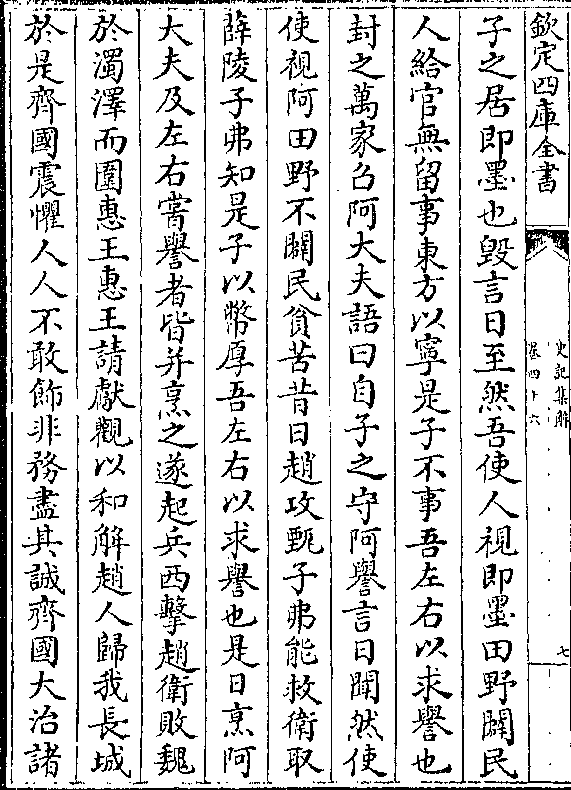 欽定四庫全書
史記集解
卷四十六
七
子之居即墨也毀言日至然吾使人視即墨田野闢民
人給官無留事東方以寧是子不事吾左右以求譽也
封之萬家召阿大夫語曰自子之守阿譽言日聞然使
使視阿田野不闢民貧苦昔日趙攻甄子弗能救衛取
薛陵子弗知是子以幣厚吾左右以求譽也是日烹阿
大夫及左右嘗譽者皆并烹之遂起兵西擊趙衛敗魏
於濁澤而圍惠王惠王請獻觀以和解趙人歸我長城
於是齊國震懼人人不敢飾非務盡其誠齊國大治諸